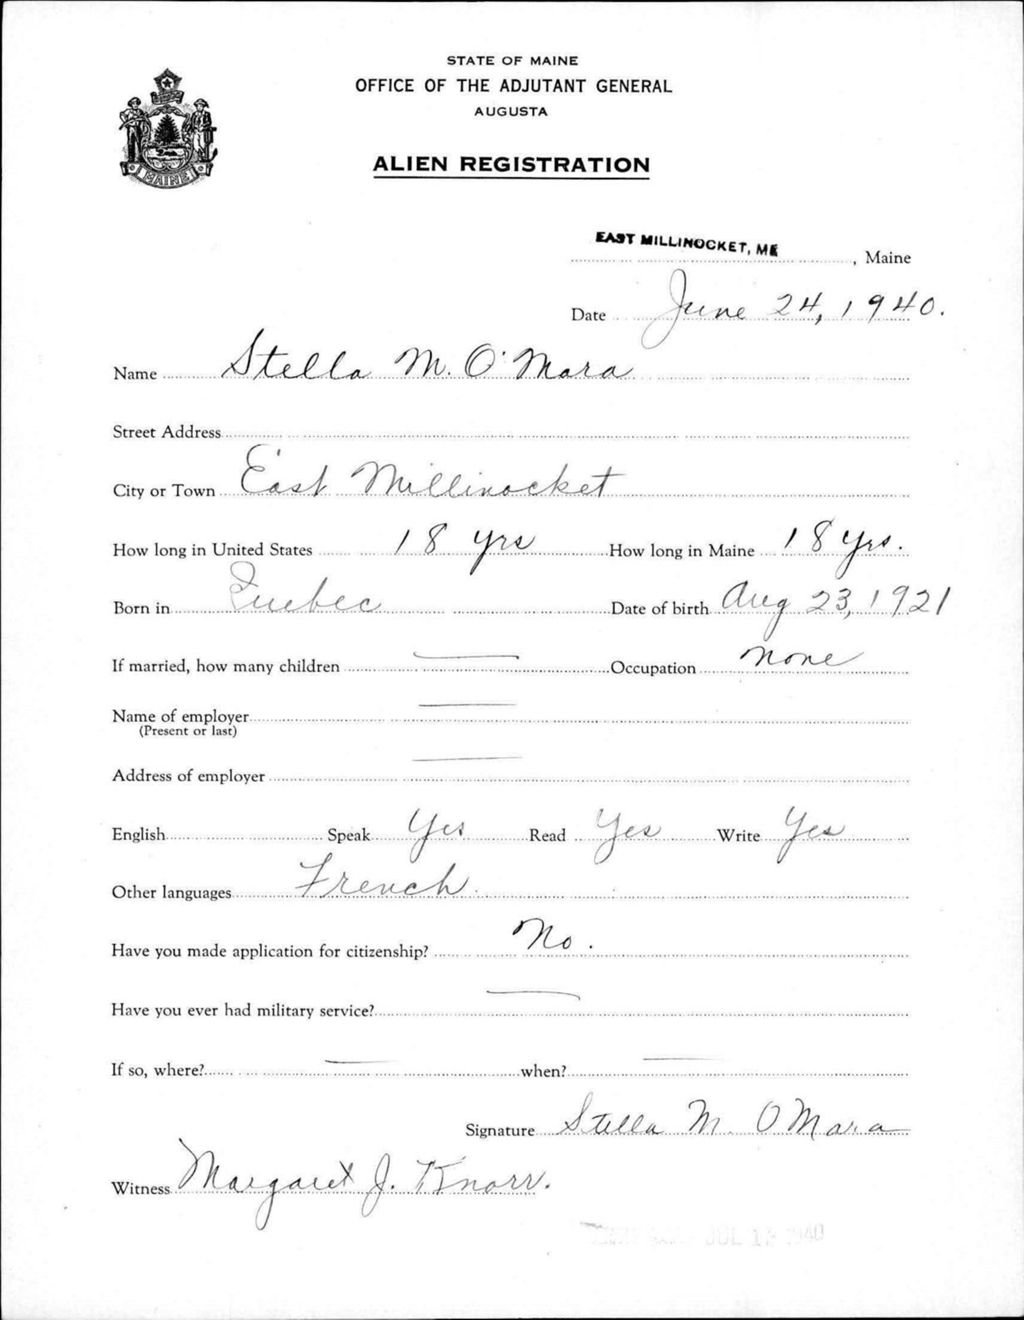 STATE OF MAINE
OFFICE OF THE ADJUTANT GENERAL
AUGUSTA
MAINE
ALIEN REGISTRATION
EAST MILLINOCKET, ME, Maine
Date June 24, 1940.
Name Stella M. O'Mara
Street Address
City or Town East Millinocket
How long in United States 18 yrs How long in Maine 18 yrs.
Born in Quebec Date of birth Aug 23, 1921
If married, how many children Occupation none
Name of employer
(Present or last)
Address of employer
English Speak Yes Read Yes Write Yes
Other languages French
Have you made application for citizenship? No.
Have you ever had military service?
If so, where? when?
Signature Stella M. O Mara
Witness Margaret J. Knorr.
JUL 1940